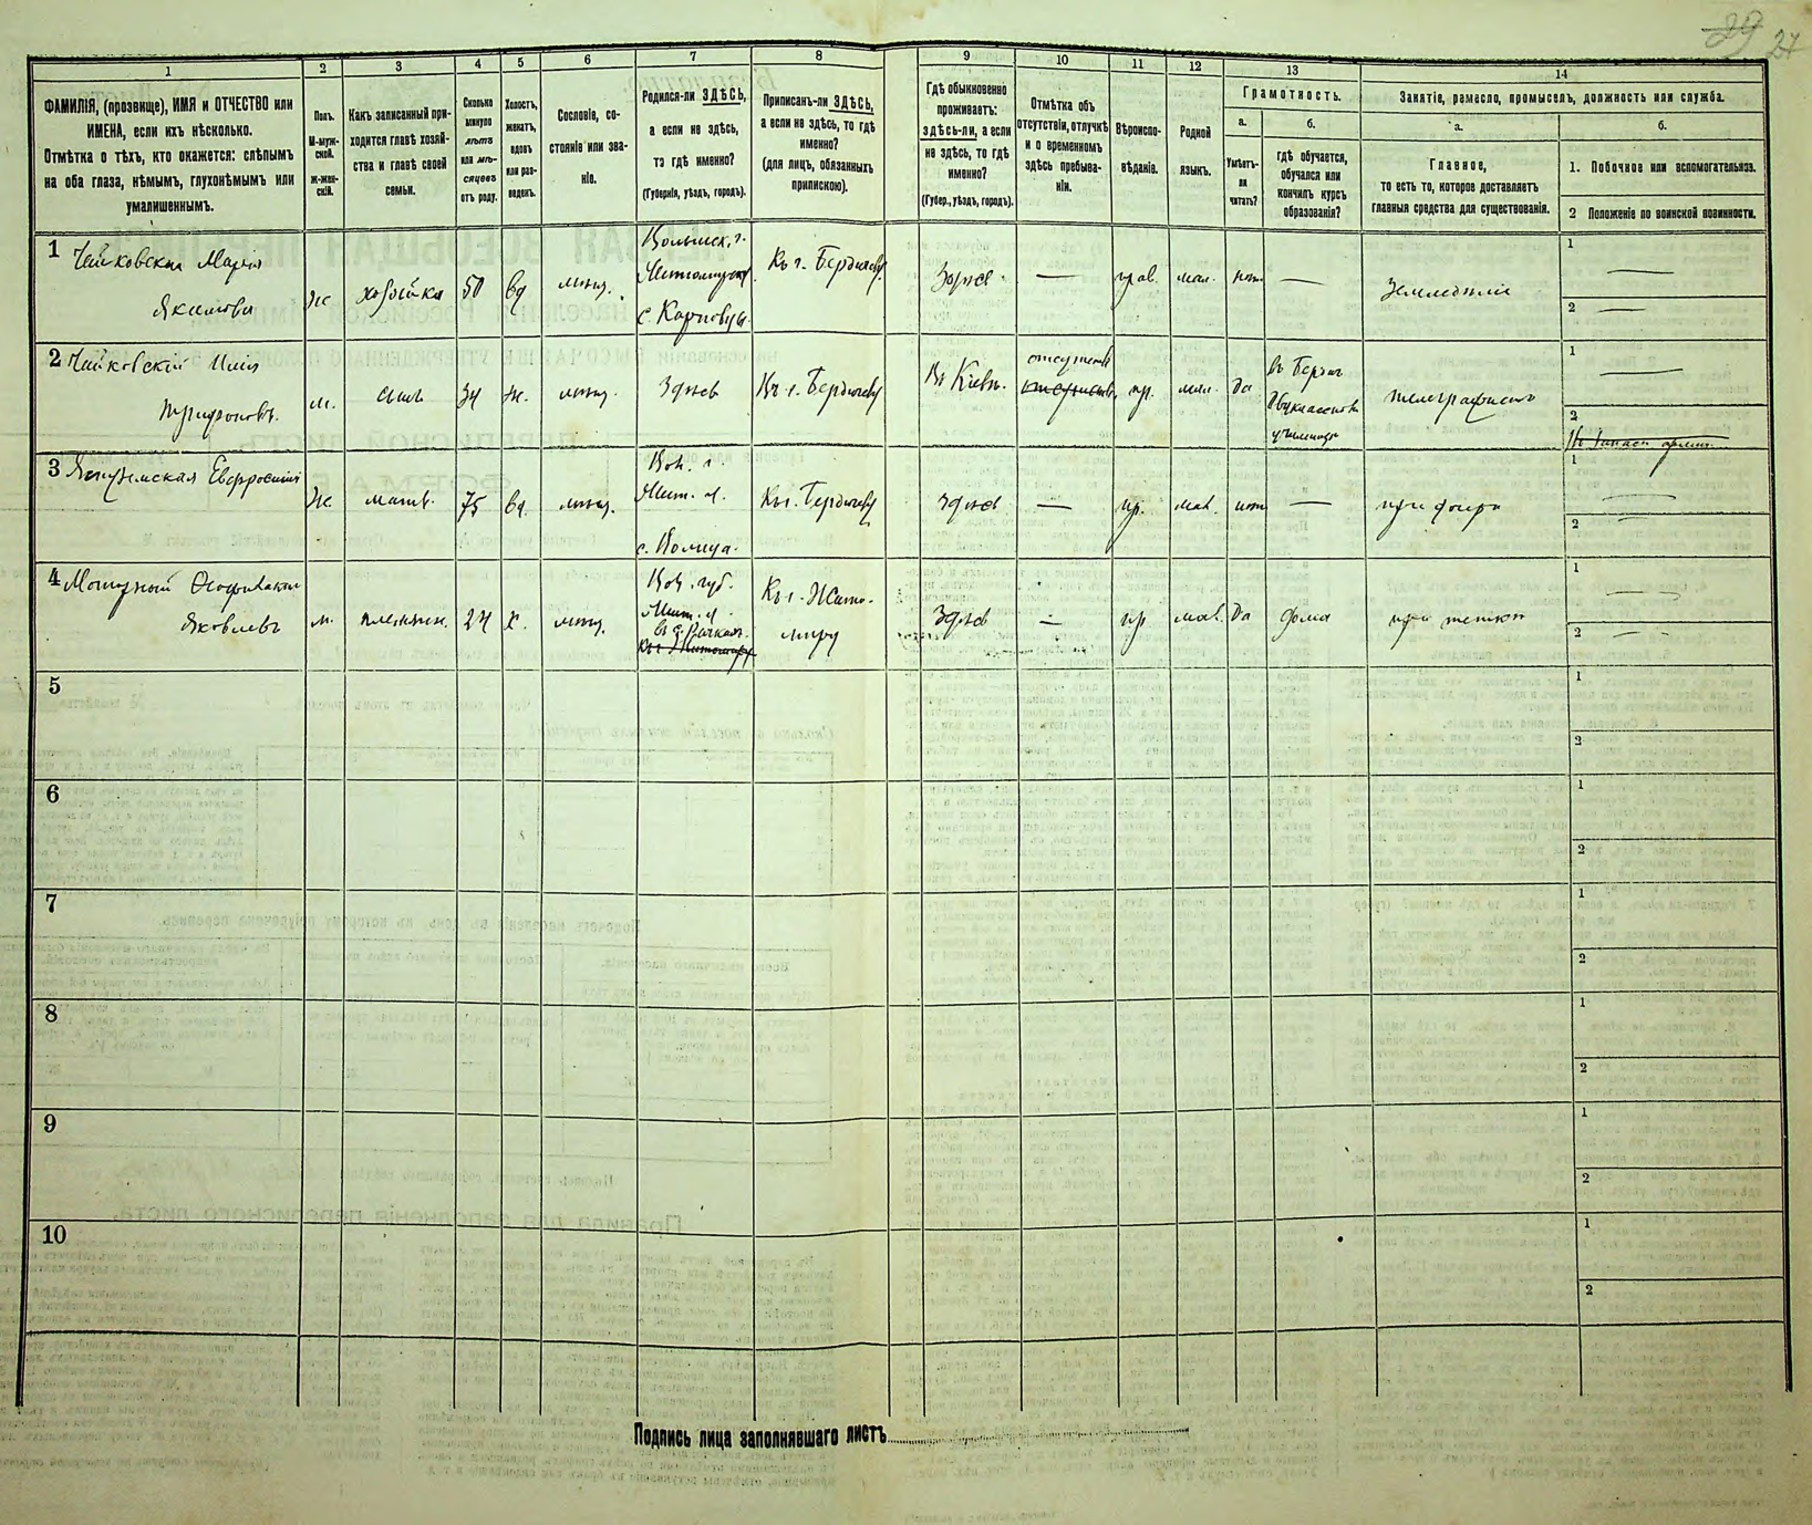 29 27
1 2 3 4 5 6 7 8 9 10 11 12 13 14
ФАМИЛІЯ, (прозвище), ИМЯ и ОТЧЕСТВО или
ИМЕНА, если ихъ нѣсколько.
Отмѣтка о тѣхъ, кто окажется: слѣпымъ
на оба глаза, нѣмымъ, глухонѣмымъ или
умалишеннымъ.
Полъ.
М-муж-
ской.
ж-жен-
скій.
Какъ записанный при-
ходится главѣ хозяй-
ства и главѣ своей
семьи.
Сколько
минуло
лѣтъ
или мѣ-
сяцевъ
отъ роду.
Холостъ,
женатъ,
вдовъ
или раз-
веденъ.
Сословіе, со-
стояніе или зва-
ніе.
Родился-ли ЗДѢСЬ,
а если не здѣсь,
то гдѣ именно?
(Губернія, уѣздъ, городъ).
Приписанъ-ли ЗДѢСЬ,
а если не здѣсь, то гдѣ
именно?
(для лицъ, обязанныхъ
припискою).
Гдѣ обыкновенно
проживаетъ:
здѣсь-ли, а если
не здѣсь, то гдѣ
именно?
(Губер., уѣздъ, городъ).
Отмѣтка объ
отсутствіи, отлучкѣ
и о временномъ
здѣсь пребыва-
ніи.
Вѣроиспо-
вѣданіе.
Родной
языкъ.
Грамотность.
а.
Умѣетъ-
ли
читать?
б.
гдѣ обучается,
обучался или
кончилъ курсъ
образованія?
Занятіе, ремесло, промыселъ, должность или служба.
а.
Главное,
то есть то, которое доставляетъ
главныя средства для существованія.
б.
1. Побочное или вспомогательное.
2 Положеніе по воинской повинности.
1 Чайковская Марія
Якимова
ж хозяйка 50 вд мѣщ.
Волынск. г.
Житомирск.
с. Карповцы
Къ г. Бердичеву
Здѣсь — прав. мал. нѣт —
Земледѣліе
1 —
2 —
2 Чайковскій Илія
Трифоновъ.
м. сынъ 34 ж. мѣщ. Здѣсь Къ г. Бердичеву
Въ Кіевѣ.
отсутств
пр. мал. да
въ Берд.
двуклассном
училищѣ
телеграфистъ
1 —
2
Въ запасѣ арміи
3 Евфросинія
Ж. мать. 75 вд. мѣщ.
Вол. г.
Жит. у.
с.
Къ г. Бердичеву
здѣсь — пр. мал. нѣт —
при дочери
1 —
2 —
4
Яковлевъ
м. племянн. 24 х. мѣщ.
Вол. губ.
Жит. у.
Къ г. Житомиру
Къ г. Жито-
миру
Здѣсь — пр мал. да дома
при теткѣ
1
2 —
5 1 2
6 1 2
7 1 2
8 1 2
9 1 2
10 1 2
Подпись лица заполнявшаго листъ